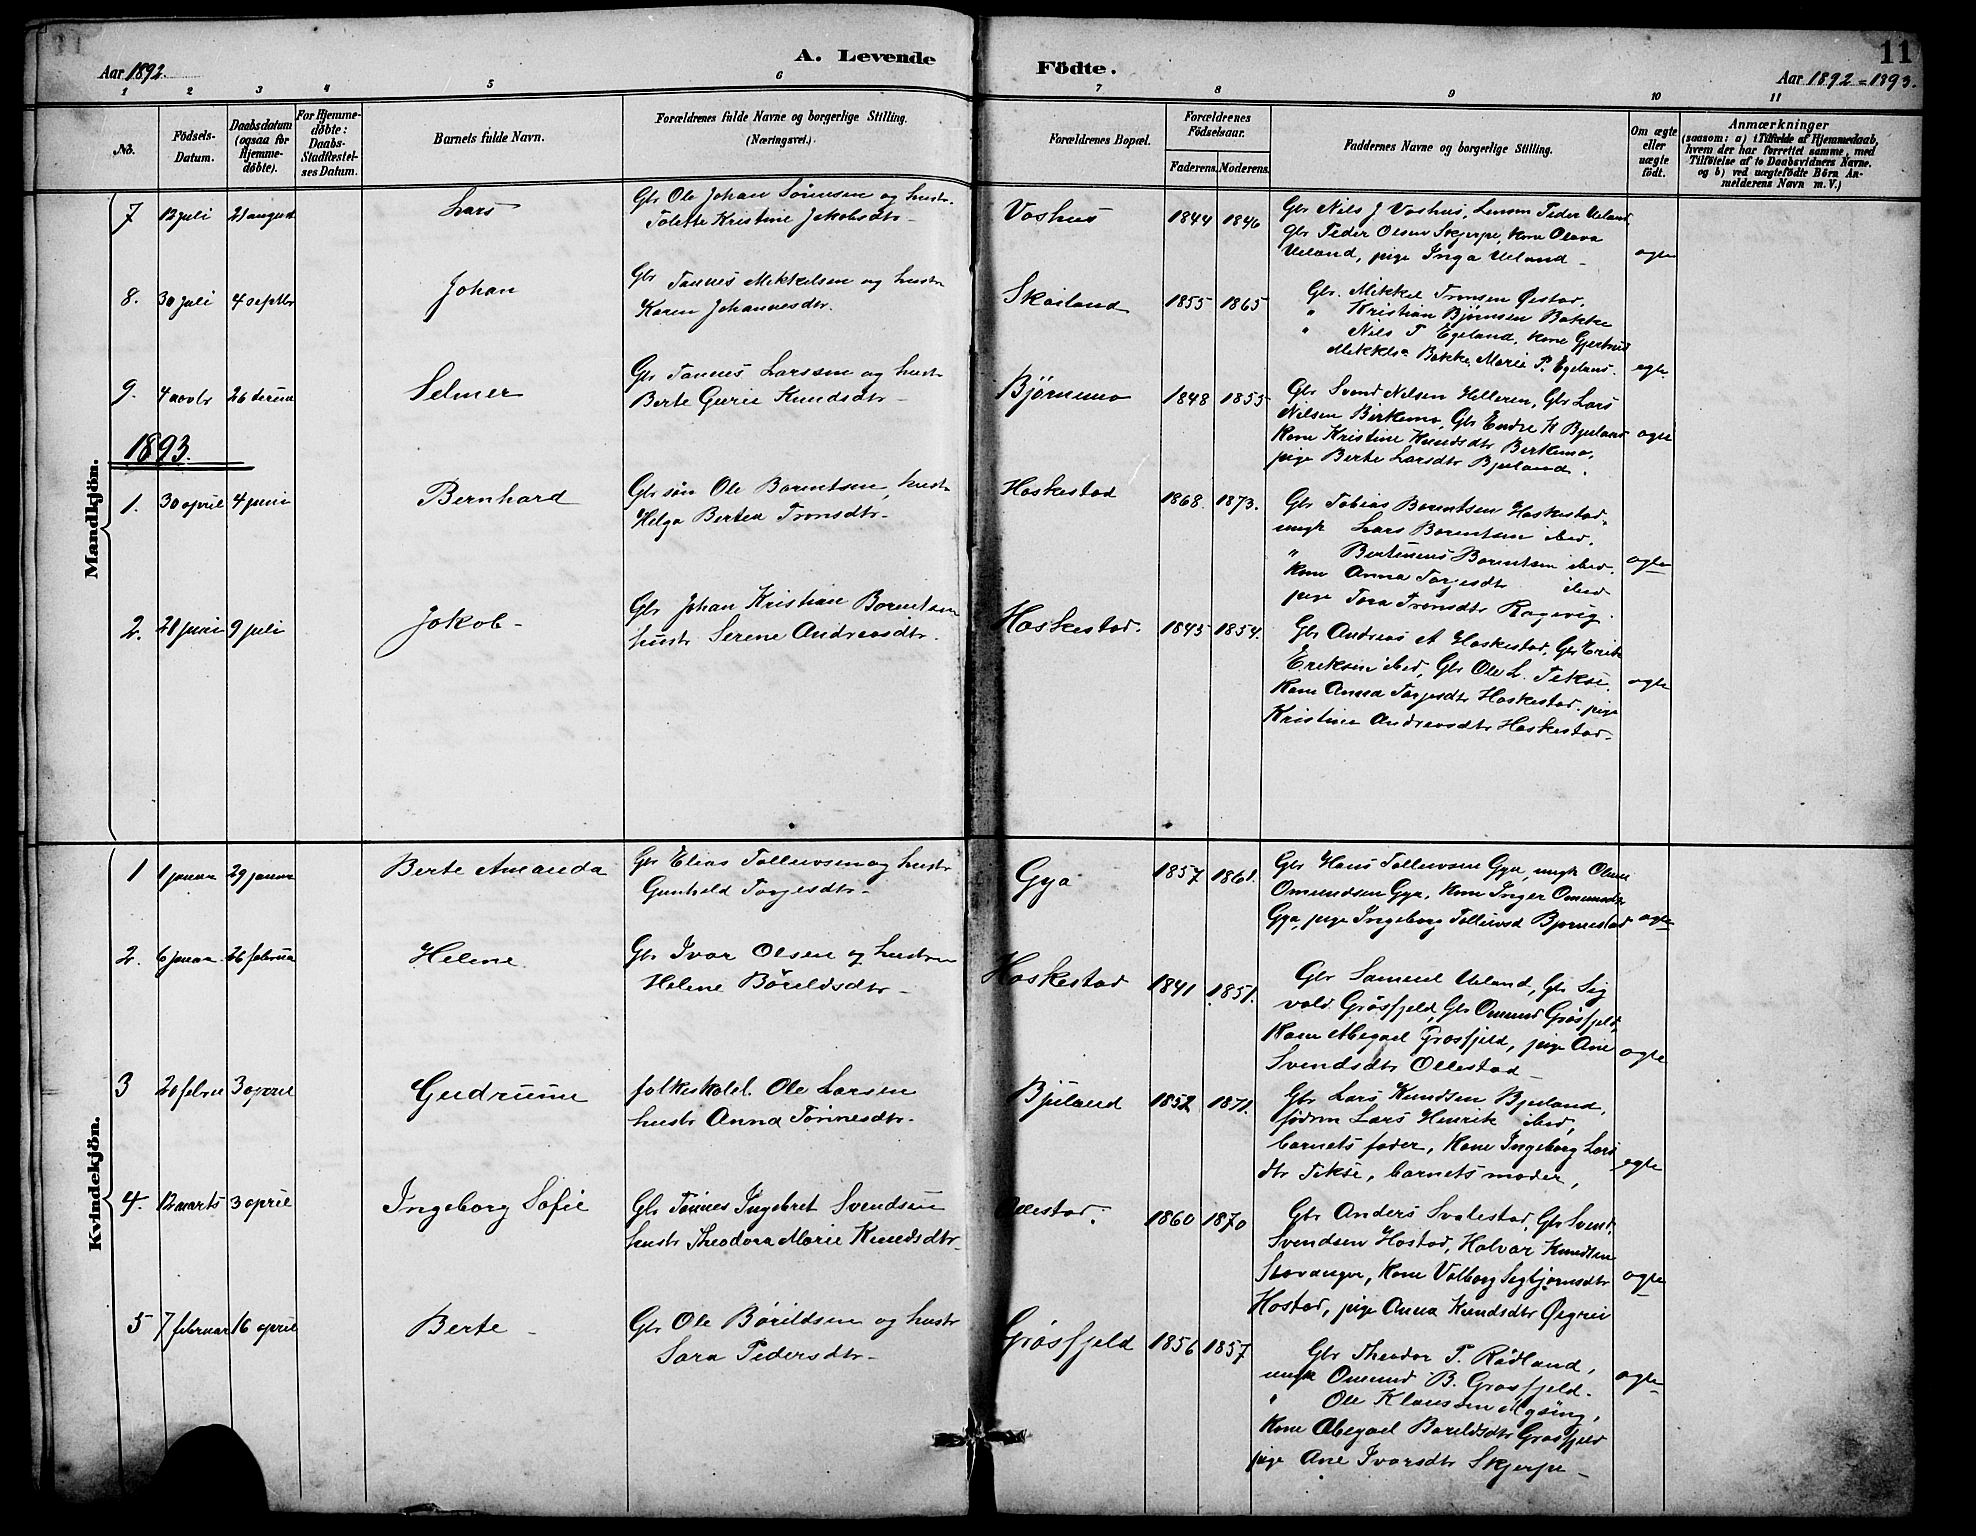 11
A. Levende Födte.
Aar 1892
Aar 1892-1893.
1 2 3 4 5 6 7 8 9 10 11
No.
Födsels-Datum.
Daabsdatum (ogsaa for Hjemmedøbte).
For Hjemmedøbte: Daabs-Stadfæstelses Datum.
Barnets fulde Navn.
Forældrenes fulde Navne og borgerlige Stilling. (Næringsvei.)
Forældrenes Bopæl.
Forældrenes Födselsaar.
Faderens. Moderens.
Faddernes Navne og borgerlige Stilling.
Om ægte eller uægte födt.
Anmærkninger
(saasom: a) i Tilfælde af Hjemmedaab,
hvem der har forrettet samme, med
Tilföielse af to Daabsvidners Navne.
og b) ved uægtefödte Börn An-
melderens Navn m. V.)
Mandkjön.
7 12 juli 21 august Lars
Gbr Ole Johan Sörensen og hustr.
Tolette Kristine Jakobsdtr-
Voshus 1844 1846
Gbr Nils J Voshus, Lensm Peder Ueland,
Gbr Peder Olsen Skjerpe, kone Olava
Ueland, pige Inga Ueland-
ægte
8. 30 juli 4 septbr Johan
Gbr Tønnes Mikkelsen og hustr
Karen Johannesdtr.
Skailand 1855 1865
Gbr. Mikkel Tronsen Øestad,
" Kristian Bjørnsen Bakke
" Nils T Egeland, kone Gjertrud
Mikkelsd Bakke, Marie P. Egelans.
ægte
9. 4 novbr 26 decem Selmer
Gbr Tønnes Larssen og hustr
Berte Gurie Knudsdtr-
Bjørnemo 1848 1855
Gbr Svend Nilsen Helleren, Gbr Lars
Nilsen Birkemo, Gbr Endre K Bjuland
kone Kristine Knudsdtr Birkemo,
pige Berte Larsdtr Bjuland.
ægte
1893.
1. 30 april 4 juni Bernhard
Gbr søn Ole Barentsen, hustr
Helga Bertea Tronsdtr-
Haskestad 1868. 1873.
Gbr Tobias Barentsen Haskestad,
ungk Lars Barentsen ibid,
" Bertinius Barentsen ibid.
kone Anna Torgesdtr ibid
pige Tora Tronsdtr Ragevig.
ægte
2. 28 juni 9 juli Jakob-
Gbr Johan Kristian Barentsen
hustr Serene Andreasdtr.
Haskestad. 1845 1854.
Gbr Andreas A Haskestad, Gbr Erik
Eriksen ibid, Gbr Ole L. Tekse.
kone Anna Torgesdtr Haskestad. pige
Kristine Andreasdtr Haskestad.
ægte
Kvindekjön.
1 1 janua 29 janua Berte Amanda
Gbr Elias Tollevsen og hustr
Gunhild Torgesdtr-
Gya 1857 1861.
Gbr Hans Tollevsen Gya, ungk Omun
Omundsen Gya, kone Inger Omundsdtr
Gya, pige Ingeborg Tollevsd Bjørnestad
ægte
2. 6 janua 26 februa Helene
Gbr Ivar Olsen og hustru
Helene Börildsdtr-
Haskestad 1841 1851.
Gbr Samuel Ueland, Gbr Sig
vald Gråsfjeld, Gbr Omund Gråsfjeld,
kone Abegael Gråsfjeld, pige Ane
Svendsdtr Ollestad-
ægte
3 20 februa 3 april Gudrune
folkeskolel. Ole Larsen
hustr Anna Tönnesdtr.
Bjuland 1852 1871.
Gbr Lars Knudsen Bjuland,
Lars Henrik ibid,
barnets fader, kone Ingeborg Lars
dtr Tekse, barnets moder,
ægte
4. 12 marts 3 april Ingeborg Sofie
Gbr Tönnes Ingebret Svendsen
hustr Theodora Marie Knudsdtr-
Ollestad. 1860 1870
Gbr Anders Svalestad, Gbr Svend,
Svendsen Hostad, Halvor Knudsen
Stavanger, kone Valborg Segbjørnsdtr
Hostad, pige Anna Knudsdtr Øigrei
ægte
5 7 februar 16 april Berte -
Gbr Ole Börildsen og hustr
Sara Pedersdtr-
Gråsfjeld 1856 1857
Gbr Theodor T. Rödland,
ungk Omund B. Grasfjeld.
" Ole Klaussen Mysing,
kone Abegael Barildsdtr Grasfjeld
pige Ane Ivarsdtr Skjerpe-
ægte